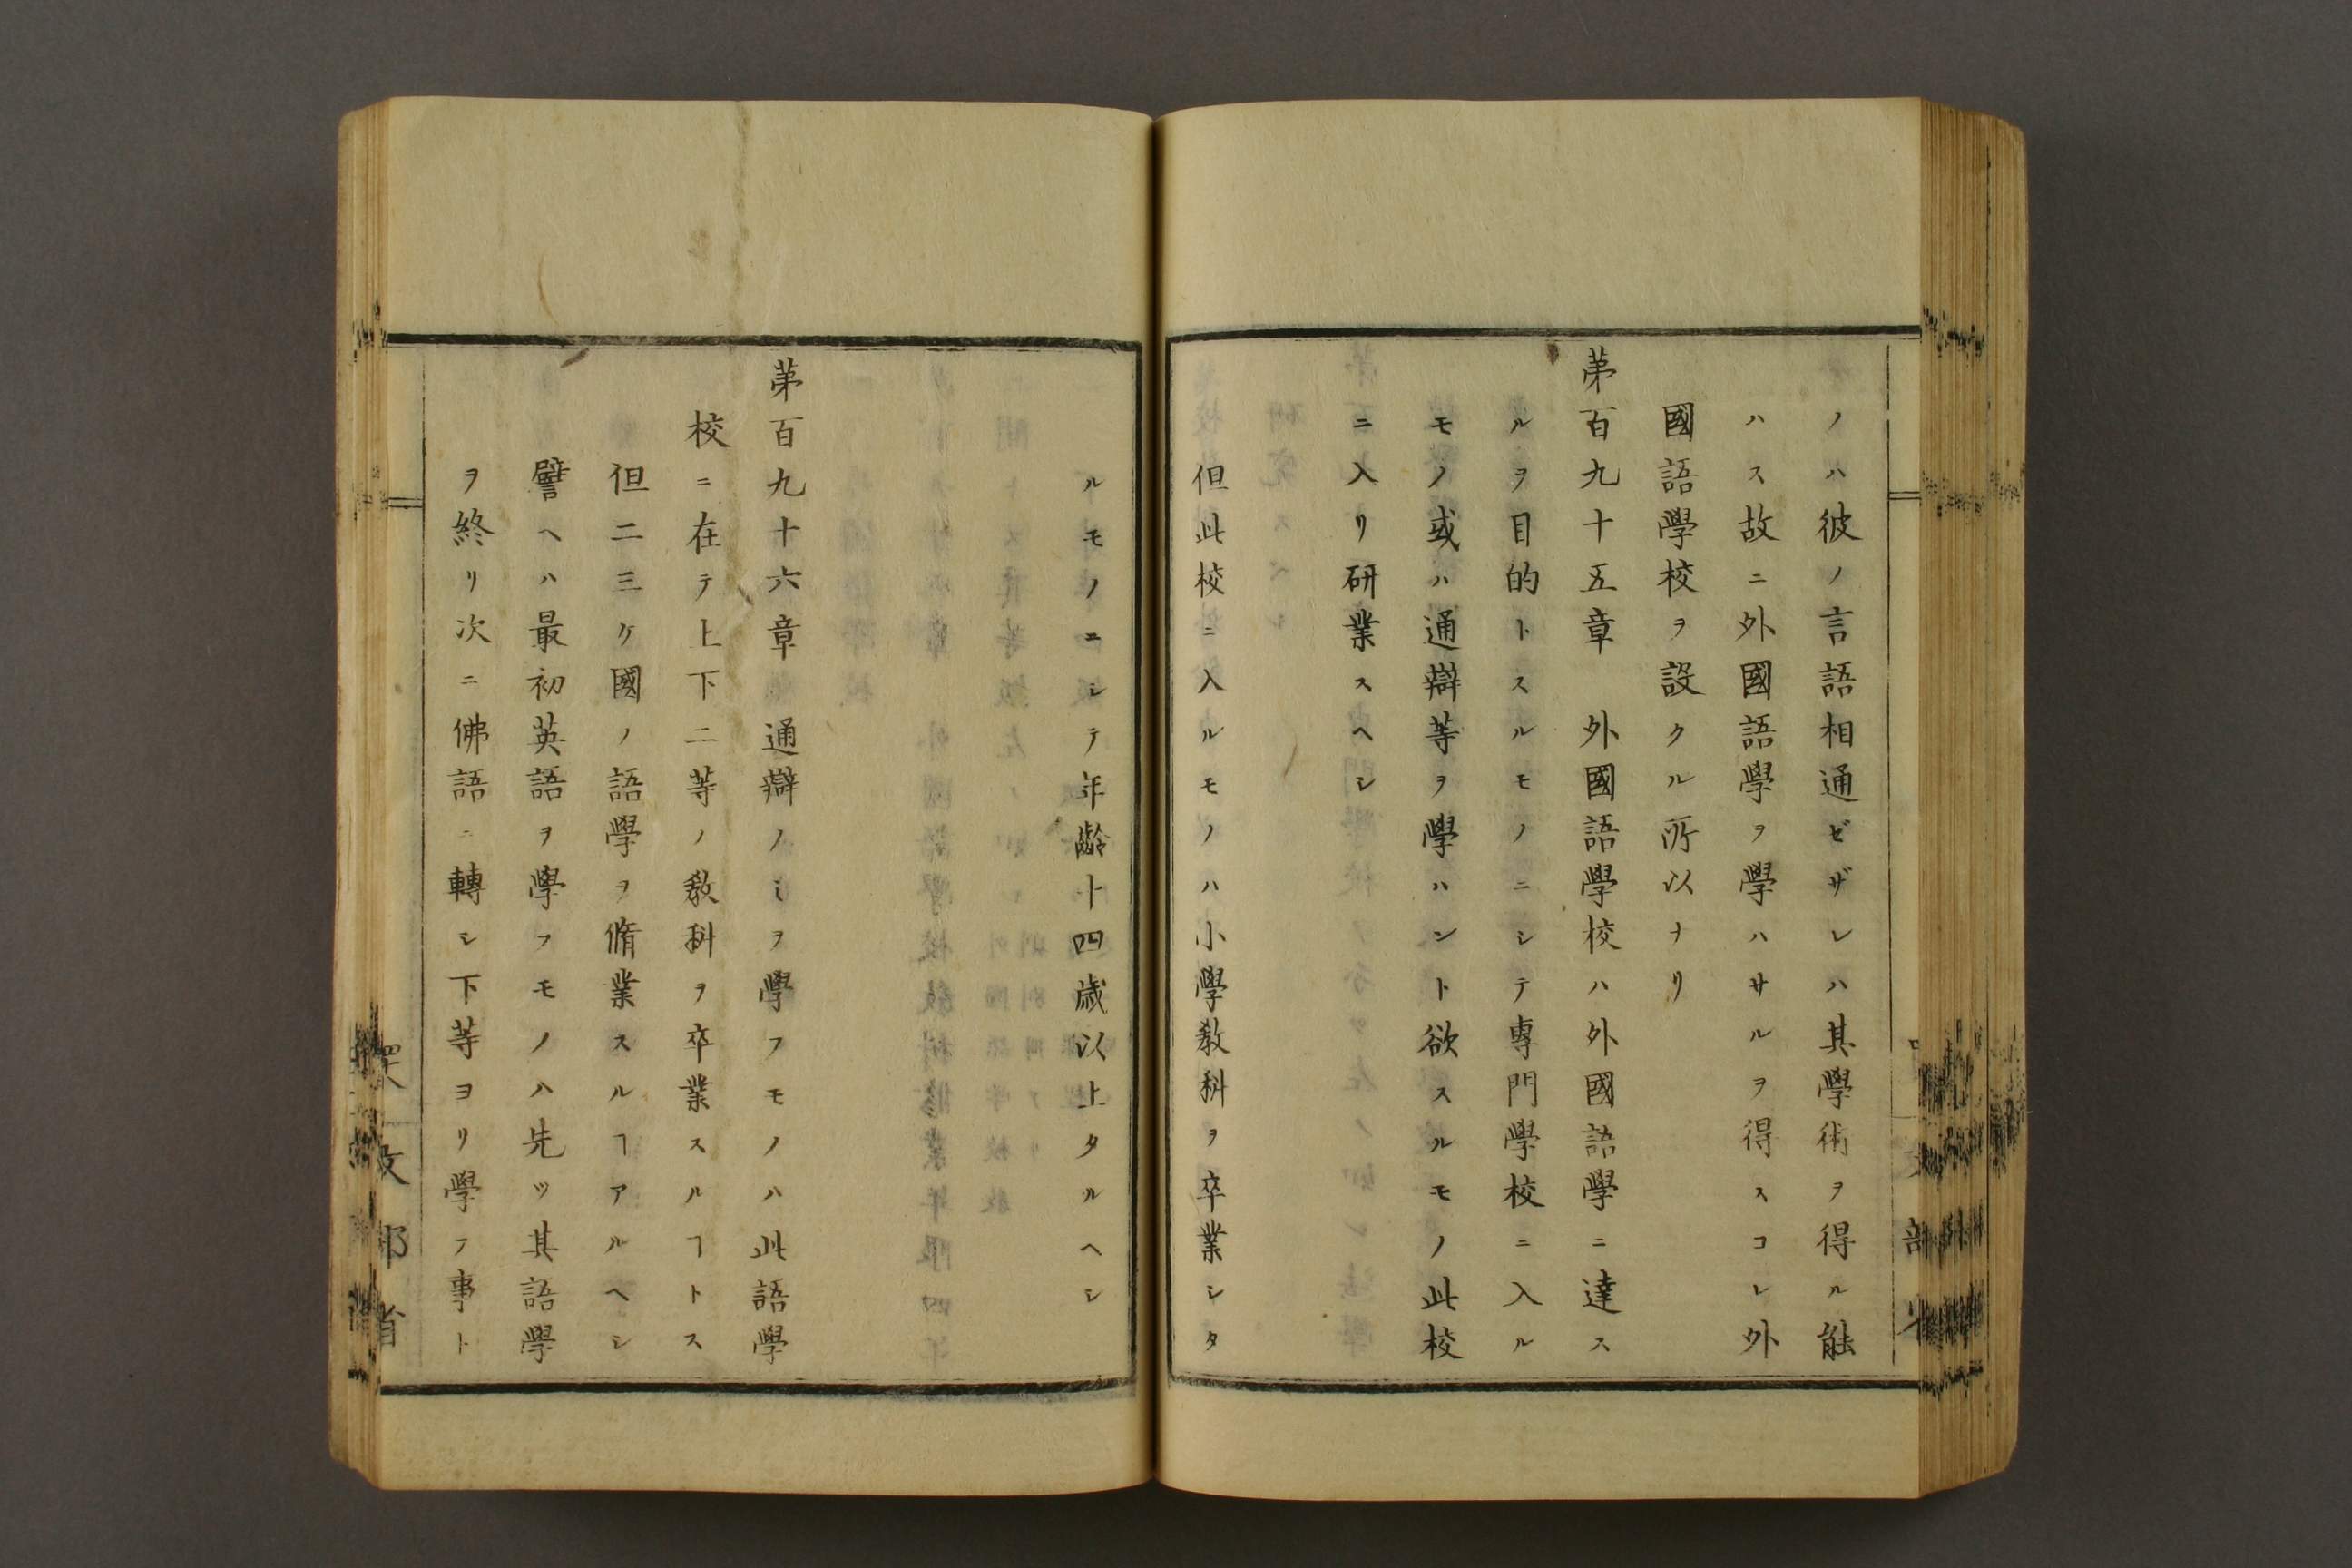 ノハ彼ノ言語相通ゼザレハ其學術ヲ得ル能
ハス故ニ外國語學ヲ學ハサルヲ得スコレ外
國語學校ヲ設クル所以ナリ
第百九十五章　外國語學校ハ外國語學ニ達ス
ルヲ目的トスルモノニシテ專門學校ニ入ル
モノ或ハ通辯等ヲ學ハント欲スルモノ此校
ニ入リ研業スヘシ
但此校ニ入ルモノハ小學敎科ヲ卒業シタ
ルモノニシテ年齡十四歲以上タルヘシ
第百九十六章　通辯ノミヲ學フモノハ此語學
校ニ在テ上下二等ノ敎科ヲ卒業スルヿトス
但二三ケ國ノ語學ヲ脩業スルヿアルヘシ
譬ヘハ最初英語ヲ學フモノハ先ツ其語學
ヲ終リ次ニ佛語ニ轉シ下等ヨリ學フ事ト
文部省